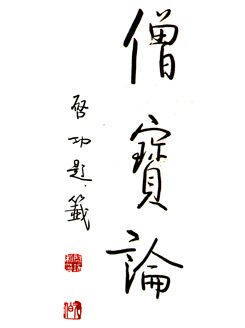 僧寶論
啓功題籤